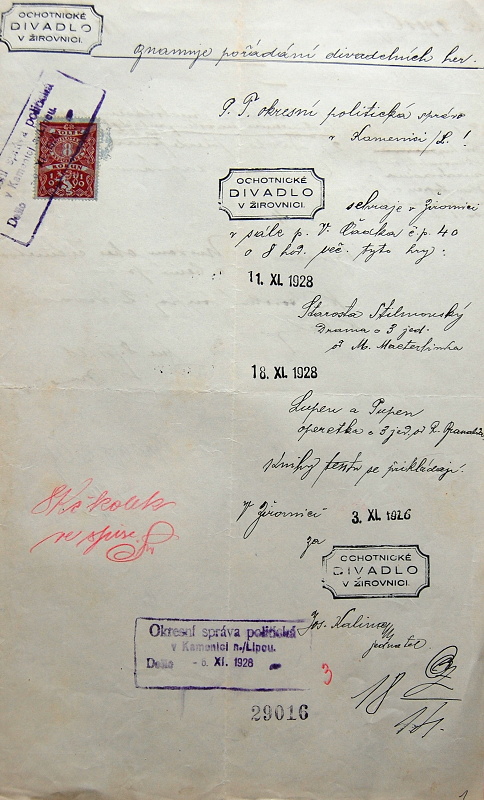 OCHOTNICKÉ
DIVADLO
V ŽIROVNICI.
oznamuje pořádání divadelních her.
P. T. okresní politická správo
v Kamenici /L. !
OCHOTNICKÉ
DIVADLO
V ŽIROVNICI.
sehraje v Žirovnici
v sále p. V. Čádka č.p. 40
o 8 hod. več. tyto hry:
11. XI. 1928
Starosta Stilmondský
Drama o 3 jed.
od M. Maeterlinka
18. XI. 1928
Lupen a Pupen
operetka o 3 jed. od R.
Knihy se přikládají.
V Žirovnici 3. XI. 1926
za
OCHOTNICKÉ
DIVADLO
V ŽIROVNICI.
Jos. Kalina
jednatel.
Kč kolek
ve spise.
Okresní správa politická
v Kamenici n./Lipou.
Došlo - 6. XI. 1928
3
29016
18
politická
v Kamenici n./Lipou.
Došlo